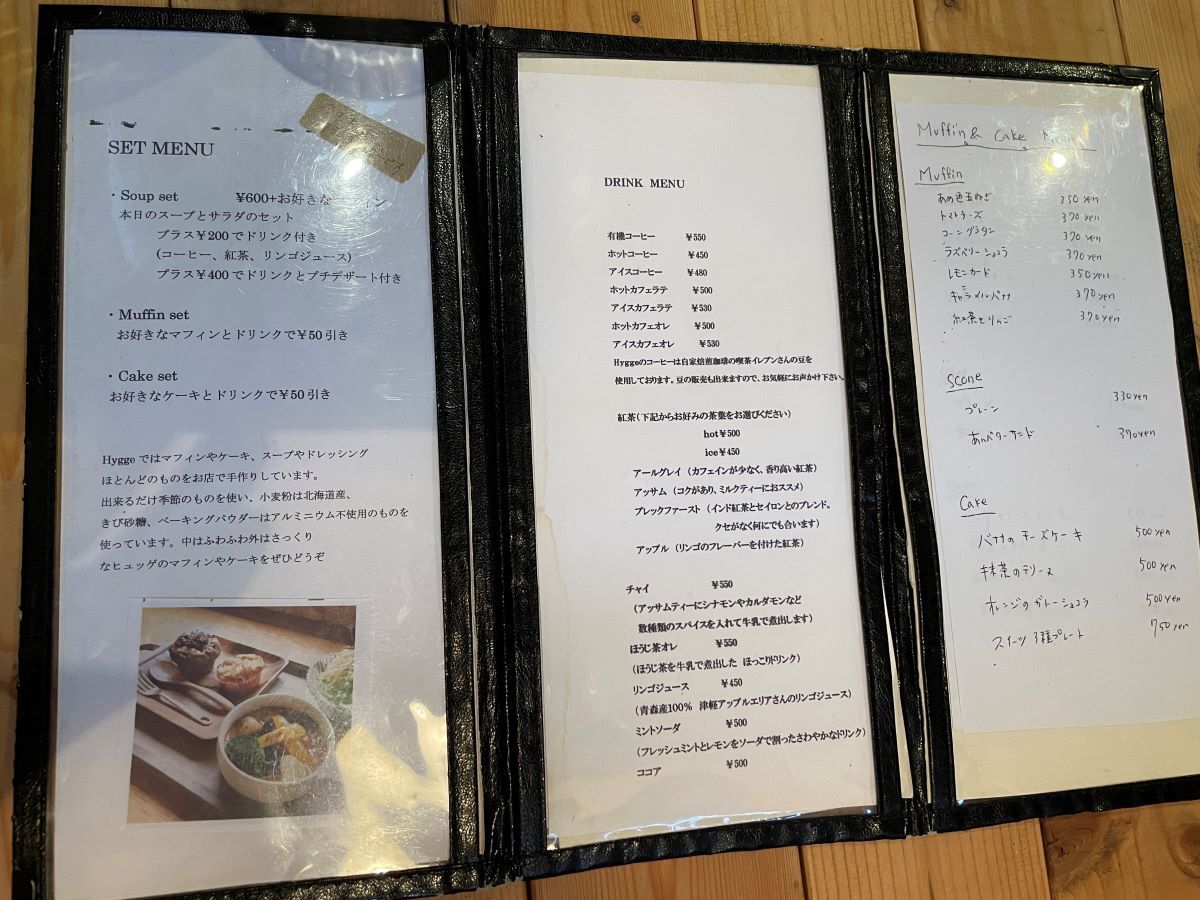 SET MENU
・Soup set ¥600+お好きなマフィン
本日のスープとサラダのセット
プラス¥200でドリンク付き
(コーヒー、紅茶、リンゴジュース)
プラス¥400でドリンクとプチデザート付き
・Muffin set
お好きなマフィンとドリンクで¥50引き
・Cake set
お好きなケーキとドリンクで¥50引き
Hygge ではマフィンやケーキ、スープやドレッシング
ほとんどのものをお店で手作りしています。
出来るだけ季節のものを使い、小麦粉は北海道産、
きび砂糖、ベーキングパウダーはアルミニウム不使用のものを
使っています。中はふわふわ外はさっくり
なヒュッゲのマフィンやケーキをぜひどうぞ
DRINK MENU
有機コーヒー ¥550
ホットコーヒー ¥450
アイスコーヒー ¥480
ホットカフェラテ ¥500
アイスカフェラテ ¥530
ホットカフェオレ ¥500
アイスカフェオレ ¥530
Hyggeのコーヒーは自家焙煎珈琲の喫茶イレブンさんの豆を
使用しております。豆の販売も出来ますので、お気軽にお声かけ下さい。
紅茶(下記からお好みの茶葉をお選びください)
hot¥500
ice¥450
アールグレイ (カフェインが少なく、香り高い紅茶)
アッサム (コクがあり、ミルクティーにおススメ)
ブレックファースト (インド紅茶とセイロンとのブレンド。
クセがなく何にでも合います)
アップル (リンゴのフレーバーを付けた紅茶)
チャイ ¥550
(アッサムティーにシナモンやカルダモンなど
数種類のスパイスを入れて牛乳で煮出します)
ほうじ茶オレ ¥550
(ほうじ茶を牛乳で煮出した ほっこりドリンク)
リンゴジュース ¥450
(青森産100% 津軽アップルエリアさんのリンゴジュース)
ミントソーダ ¥500
(フレッシュミントとレモンをソーダで割ったさわやかなドリンク)
ココア ¥500
Muffin & Cake Menu
Muffin
あめ色玉ねぎ 350 yen
トマトチーズ 370 yen
コーングラタン 370 yen
ラズベリーショコラ 370 yen
レモンカード 350 yen
キャラメルバナナ 370 yen
紅茶とりんご 370 yen
Scone
プレーン 330 yen
あんバターサンド 370 yen
Cake
バナナのチーズケーキ 500 yen
抹茶のテリーヌ 500 yen
オレンジのガトーショコラ 500 yen
スイーツ3種プレート 750 yen